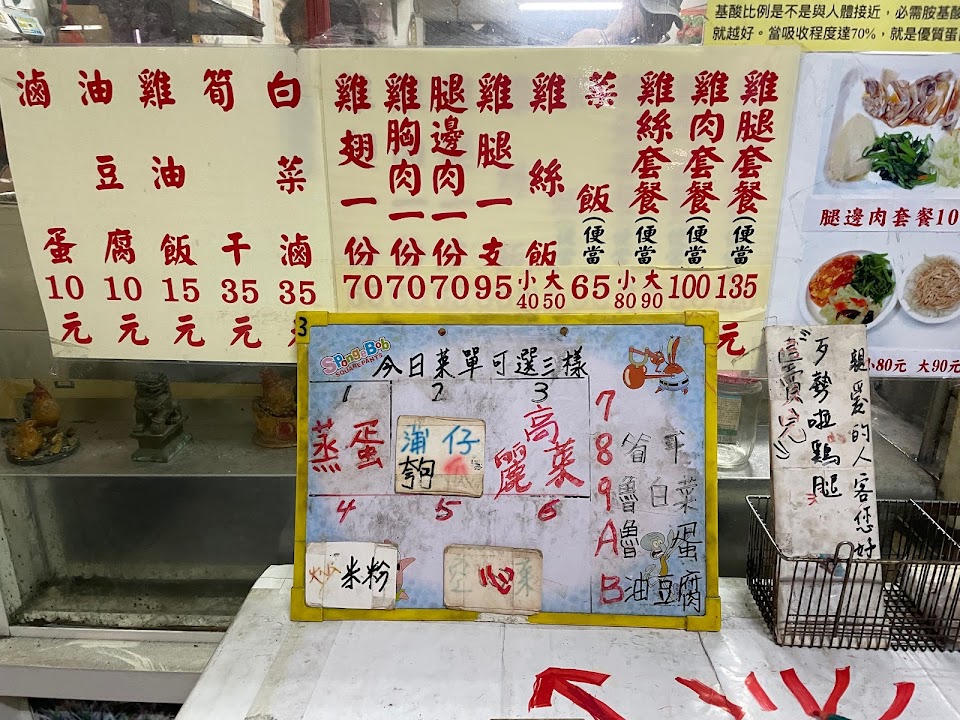 基酸比例是不是與人體接近，必需胺基酸
就越好。當吸收程度達70%，就是優質蛋白
滷蛋 10元
油豆腐 10元
雞油飯 15元
筍干 35元
白菜滷 35元
雞翅一份 70
雞胸肉一份 70
腿邊肉一份 70
雞腿一支 95
雞絲飯 小40 大50
菜飯(便當 65
雞絲套餐(便當 小80 大90
雞肉套餐(便當 100
雞腿套餐(便當 135
元
腿邊肉套餐10
小80元 大90元
3
SPongeBob
SQUAREPANTS
今日菜單可選三樣
1
蒸蛋
2
蒲仔
3
高麗菜
4
炒米粉
5
空心菜
6
7
8 筍干
9 魯白菜
A 魯蛋
B 油豆腐
親愛的人客您好
歹勢啦雞腿
"賣完"